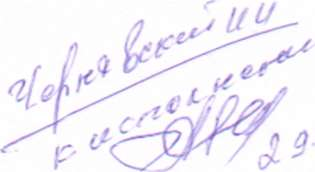 Чернявский ИИ
к исполнению
29.